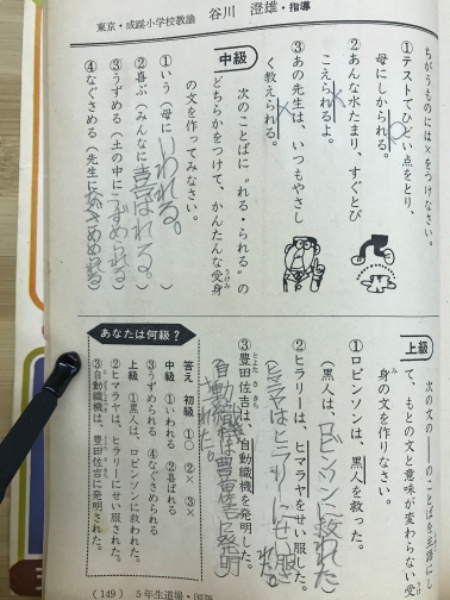 東京・成蹊小学校教諭 谷川 澄雄・指導
ちがうものには×をつけなさい。
①テストでひどい点をとり、
母にしかられる。
○
②あんな水たまり、すぐとび
こえられるよ。
×
③あの先生は、いつもやさし
く教えられる。
×
中級
次のことばに〝れる・られる〟の
どちらかをつけて、かんたんな受身
うけみ
の文を作ってみなさい。
①いう（母にいわれる。）
②喜ぶ（みんなに喜ばれる。）
③うずめる（土の中にうずめられる）
④なぐさめる（先生になぐさめられる）
上級
次の文の――のことばを主語にし
て、もとの文と意味が変わらない受
身の文を作りなさい。
①ロビンソンは、黒人を救った。
（黒人は、ロビンソンに救われた）
②ヒラリーは、ヒマラヤをせい服した。
（ヒマラヤはヒラリーにせい服された。
③豊田佐吉は、自動織機を発明した。
とよた さきち
自動織機は豊田佐吉に発明
された。
あなたは何級？
答え 初級 ①○ ②× ③×
中級 ①いわれる ②喜ばれる
③うずめられる ④なぐさめられる
上級 ①黒人は、ロビンソンに救われた。
②ヒマラヤは、ヒラリーにせい服された。
③自動織機は、豊田佐吉に発明された。
（149） 5年生道場・国語